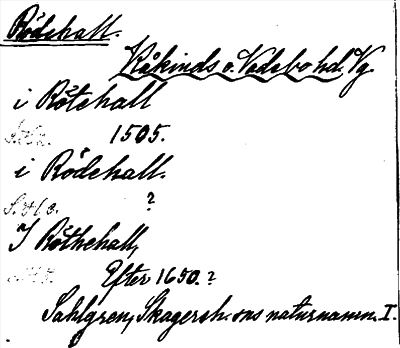 Rödehall.
Kåkinds o. Vadsbo hd. Vg.
i Rötehall
1505.
i Rödehall.
?
I Röthehall,
Efter 1650.?
Sahlgren, Skagersh. ons naturnamn. I.